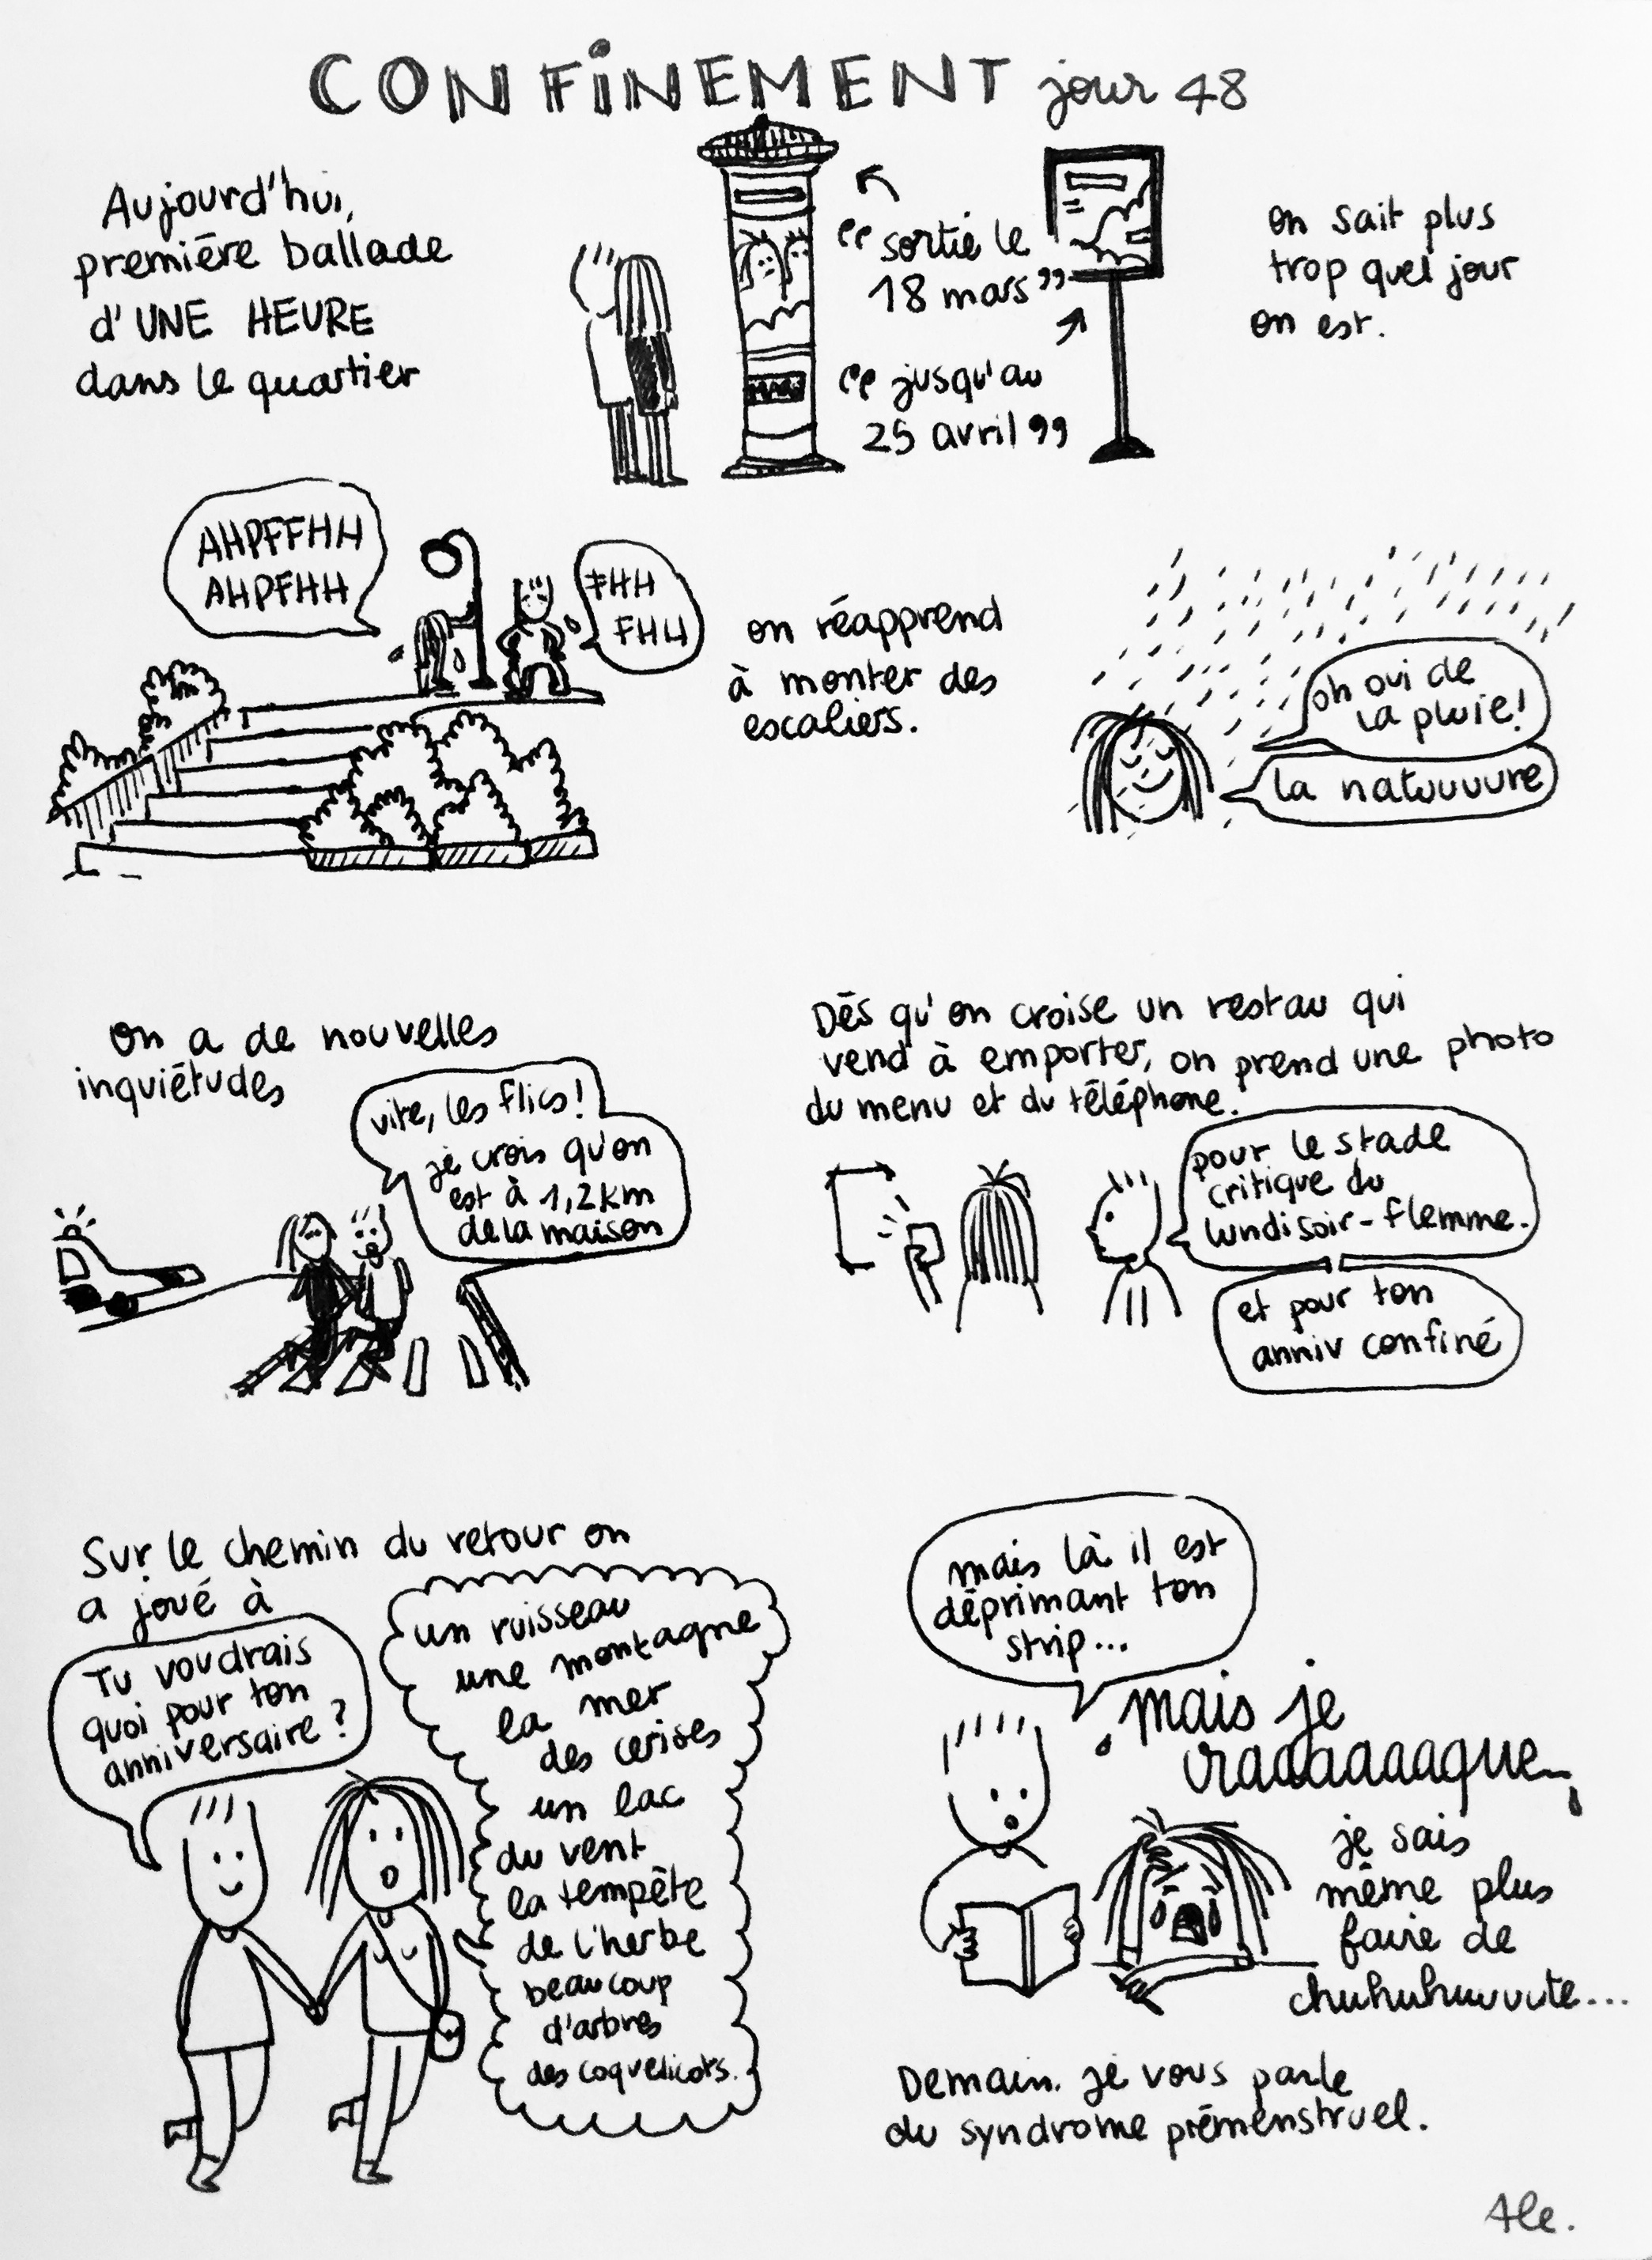 CONFiNEMENT jour 48
Aujourd'hui,
première ballade
d'UNE HEURE
dans le quartier
"sortie le
18 mars"
"jusqu'au
25 avril"
on sait plus
trop quel jour
on est.
AHPFFHH
AHPFHH
FHH
FHH
on réapprend
à monter des
escaliers.
oh oui de
la pluie!
la natuuuure
on a de nouvelles
inquiétudes
vite, les flics!
je crois qu'on
est à 1,2km
de la maison
Dès qu'on croise un restau qui
vend à emporter, on prend une photo
du menu et du téléphone.
pour le stade
critique du
lundi soir-flemme.
et pour ton
anniv confiné
Sur le chemin du retour on
a joué à
Tu voudrais
quoi pour ton
anniversaire?
un ruisseau
une montagne
la mer
des cerises
un lac
du vent
la tempête
de l'herbe
beaucoup
d'arbres
des coquelicots.
mais là il est
déprimant ton
strip...
mais je
craaaaaaaque
je sais
même plus
faire de
chuhuhuuuute...
Demain. je vous parle
du syndrome prémenstruel.
Ale.